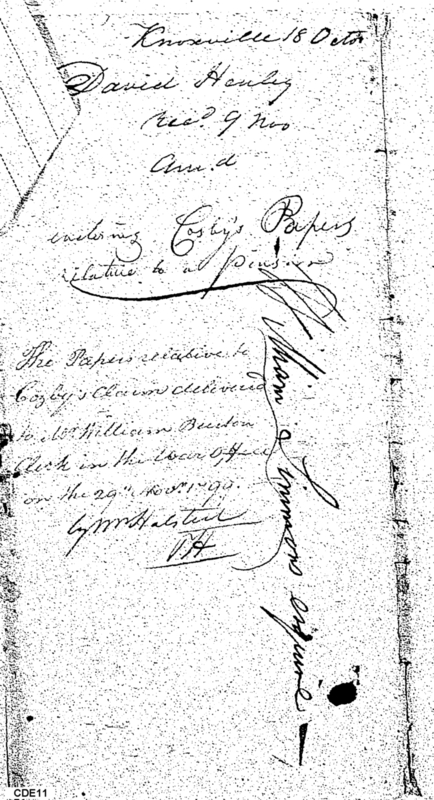 Knoxville 18 Octor
David Henley
Recd. 9 Nov
Am.d
enclosing Cosby's Papers
relative to a Pension
William Simmons esquire
The Papers relative to
Cozby's Claim delivered
to Mr. William Burton
Clerk in the War Office
on the 29th Novr. 1799.
by Wm Halsted
CDE11